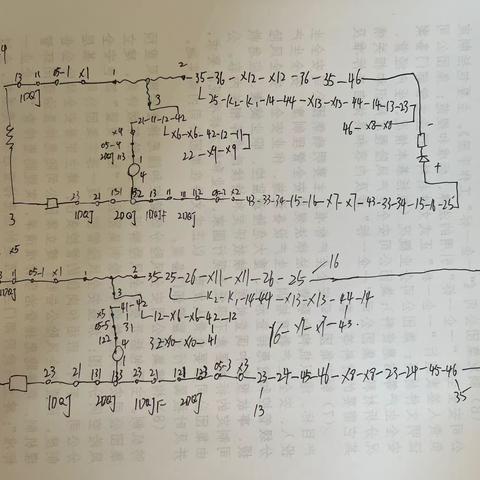 4
13 11 05-1 X1 1 2 35-36-X12-X12-36-35-46
1DQJ
25-K2-K1-14-44-X13-X13-44-14-13-23
3
21-11-12-42
46-X8-X8
X4
X6-X6-42-12-11
05-4
22-X9-X9
2DQJ 113 1
4
-
+
3
23 21 131 132 13 11 11 112 05-2 X2 43-33-34-15-16-X7-X7-43-33-34-15-16-25
1DQJ 2DQJ 1DQJF 2DQJ
X5
11 05-1 X1 1 2 35-25-26-X11-X11-26-25 16
1DQJ
K2-K1-14-44-X13-X13-44-14
3
41-42
X5
12-X6-X6-42-12
05-5
31
32-X10-X10-41
122
4
23 21 131 133 23 21 121 122 05-3 X3 23-24-45-46-X8-X8-23-24-45-46
1DQJ 2DQJ 1DQJF 2DQJ
13 35